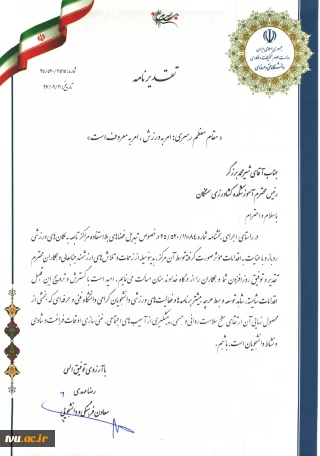 جمهوری اسلامی ایران
وزارت علوم، تحقیقات و فناوری
دانشگاه فنی و حرفه‌ای
شماره:
تاریخ:
تقدیرنامه
« مقام معظم رهبری: امر به ورزش، امر به معروف است»
جناب آقای شیرمحمد برزگر
رئیس محترم آموزشکده کشاورزی سمنگان
با سلام و احترام
در راستای اجرای بخشنامه شماره در خصوص تبدیل فضاهای بلااستفاده مراکز تابعه به مکان‌های ورزشی
روباز با عنایت به اقدامات مؤثر صورت گرفته توسط آن مرکز، بدینوسیله از زحمات و تلاش‌های ارزشمند جنابعالی و همکاران محترم
تقدیر و توفیق روزافزون شما و همکاران را از درگاه خداوند منان مسألت می‌نمایم. امید است با گسترش و ترویج این قبیل
اقدامات شایسته، شاهد توسعه و بسط هرچه بیشتر برنامه‌ها و فعالیت‌های ورزشی دانشجویان گرامی دانشگاه فنی و حرفه‌ای که بخشی از
محصول نهایی آن ارتقای سطح سلامت روانی و جسمی، پیشگیری از آسیب‌های اجتماعی، غنی سازی اوقات فراغت و شادی
و نشاط دانشجویان است، باشیم.
با آرزوی توفیق الهی
رضا مهدی
معاون فرهنگی و دانشجویی
tvu.ac.ir